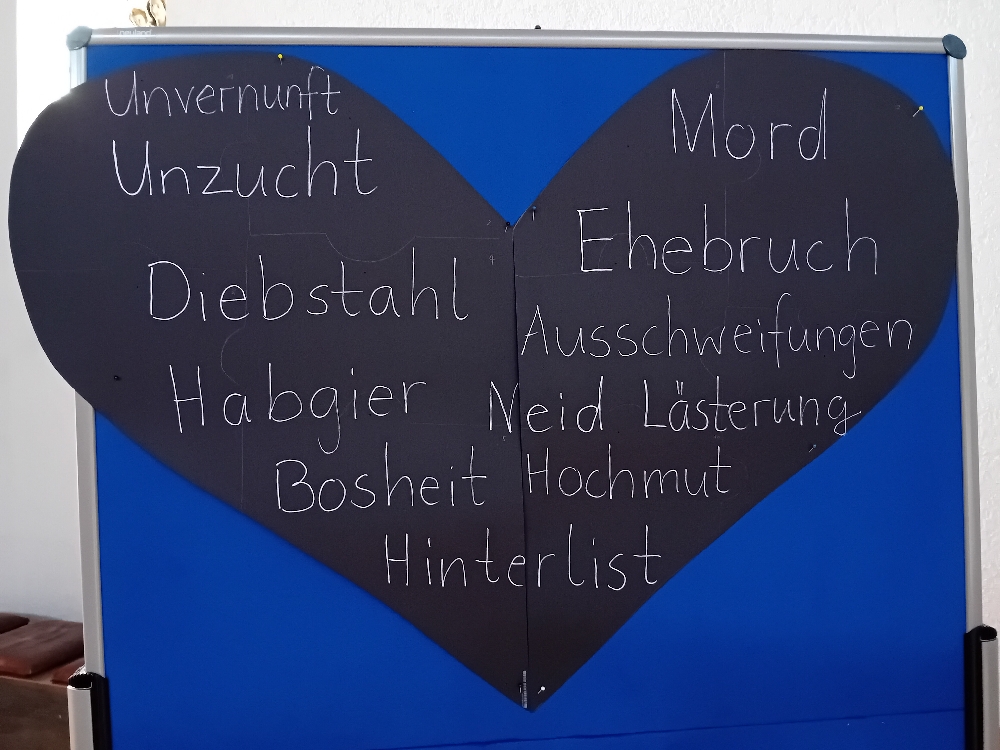 neuland
Unvernunft
Mord
Unzucht
Ehebruch
Diebstahl
Ausschweifungen
Habgier
Neid Lästerung
Bosheit
Hochmut
Hinterlist